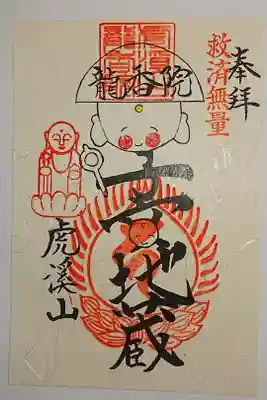 奉拝
救済無量
龍香院
千地蔵
虎溪山